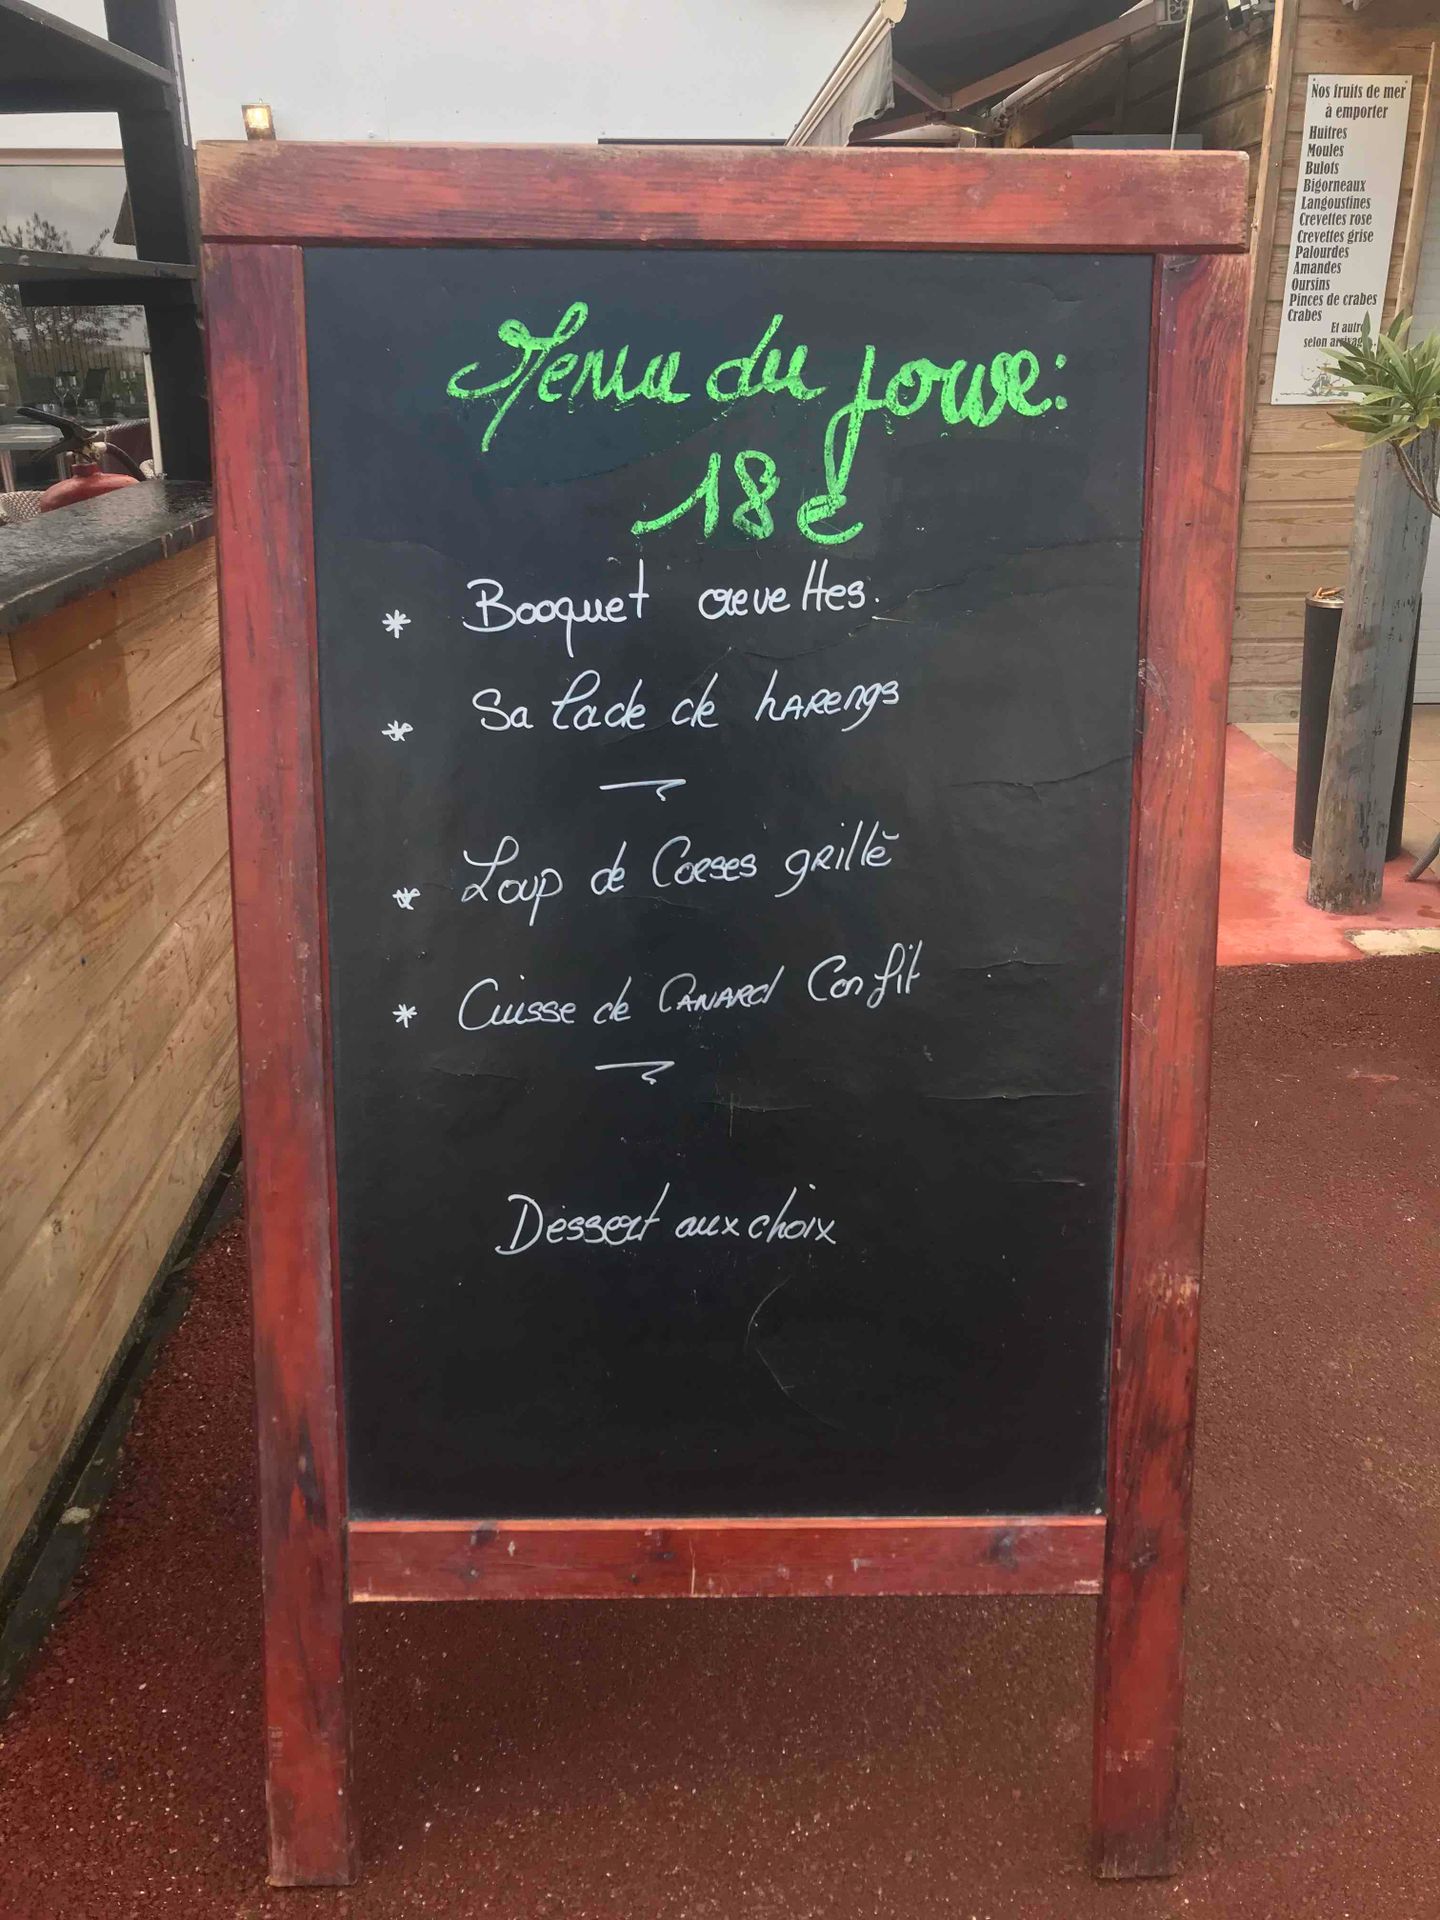 Menu du jour:
18€
* Booquet crevettes.
* Salade de harengs
* Loup de Corses grillé
* Cuisse de Canard Confit
Dessert aux choix
Nos fruits de mer
à emporter
Huitres
Moules
Bulots
Bigorneaux
Langoustines
Crevettes rose
Crevettes grise
Palourdes
Amandes
Oursins
Pinces de crabes
Crabes
Et
selon